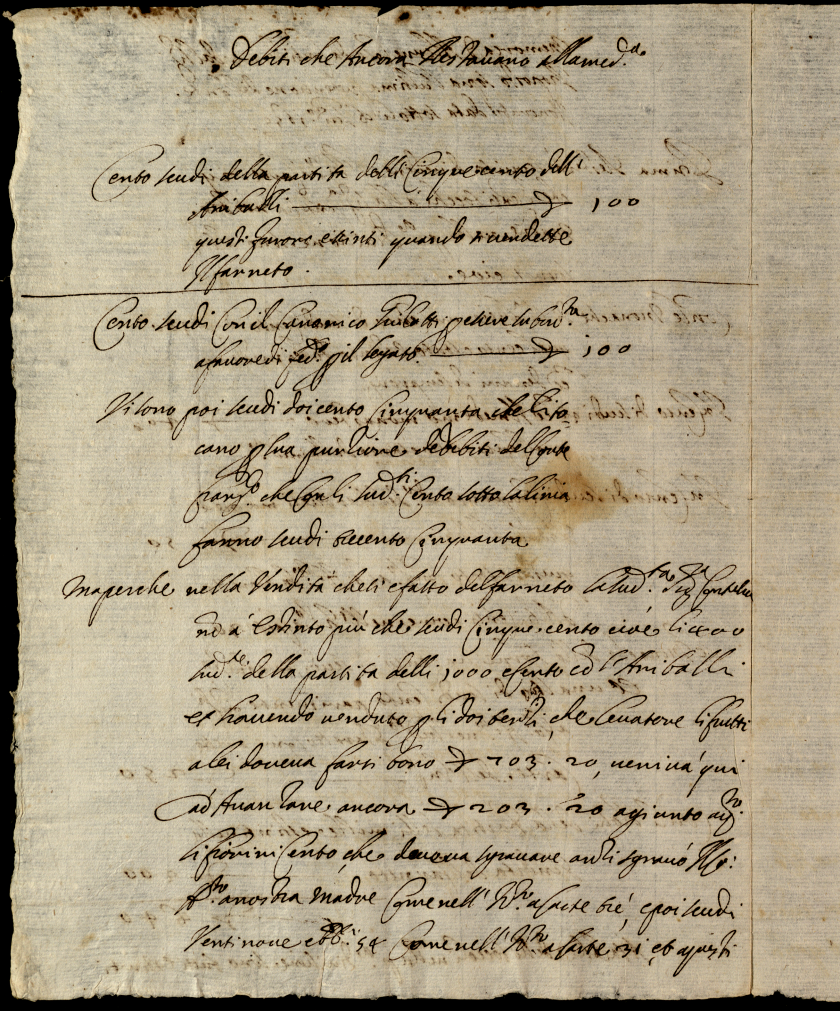 Debiti che Ancora Restavano alla med.a
Cento scudi della partita delli Cinquecento dell'
Aniballi ▽ 100
questi furono estinti quando si vendette
Il farneto.
Cento scudi Con il Canonico
a favore di fed.o p il legato ▽ 100
Vi sono poi scudi doicento Cinquanta che li to
cano p sua purtione de debiti del Conte
che Con li sud.ti Cento sotto la linia
fanno scudi trecento Cinquanta
ma perche nella Vendita che si è fatto del farneto la sud.ta Sig.ra Contessa
ne a Estinto più che scudi Cinque cento cioè li 400
sud.te della partita delli 1000 e Cento con l'Aniballi
et havendo venduto p li doi che levatone li frutti
a lei doveva farsi bono ▽ 703. 20, veniva qui
ad Avanzare ancora ▽ 203. 20 agiunto a
li fiorini Cento che doveva sgravare anzi sgravò
a nostra Madre Come nell' a carte trè, e poi scudi
Ventinove e 54 Come nell' a carte 31 et a questi